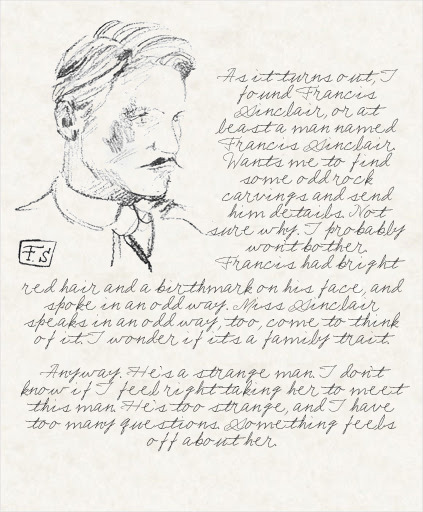 As it turns out, I
found Francis
Sinclair, or at
least a man named
Francis Sinclair.
Wants me to find
some odd rock
carvings and send
him details. Not
sure why. I probably
wont bother.
Francis had bright
red hair and a birthmark on his face, and
spoke in an odd way. Miss Sinclair
speaks in an odd way, too, come to think
of it. I wonder if its a family trait.
Anyway. He's a strange man. I don't
know if I feel right taking her to meet
this man. He's too strange, and I have
too many questions. Something feels
off about her.
F.S